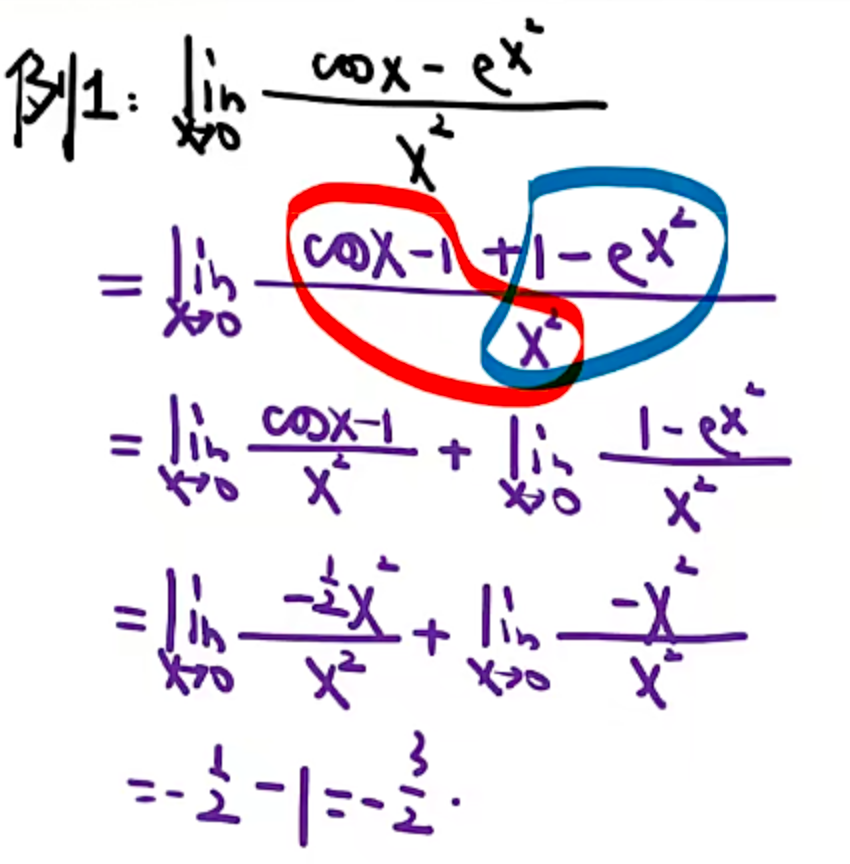 例1: lim x→0 (cosx - e^x²) / x²
= lim x→0 (cosx-1 + 1 - e^x²) / x²
= lim x→0 (cosx-1) / x² + lim x→0 (1 - e^x²) / x²
= lim x→0 (-½x²) / x² + lim x→0 (-x²) / x²
= - ½ - 1 = - 3/2 .